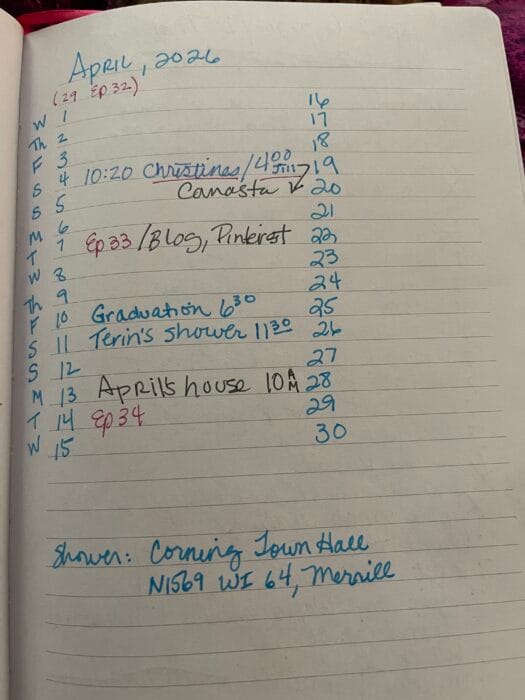 April, 2026
(29 Ep 32)
W 1
Th 2
F 3
S 4 10:20 Christinas/4:00 Jill
Canasta
S 5
M 6
T 7 Ep 33 /Blog, Pinterest
W 8
Th 9
F 10 Graduation 6 30
S 11 Terin's Shower 11 30
S 12
M 13 April's house 10 AM
T 14 Ep 34
W 15
16
17
18
19
20
21
22
23
24
25
26
27
28
29
30
Shower: Corning Town Hall
N1569 WI 64, Merrill